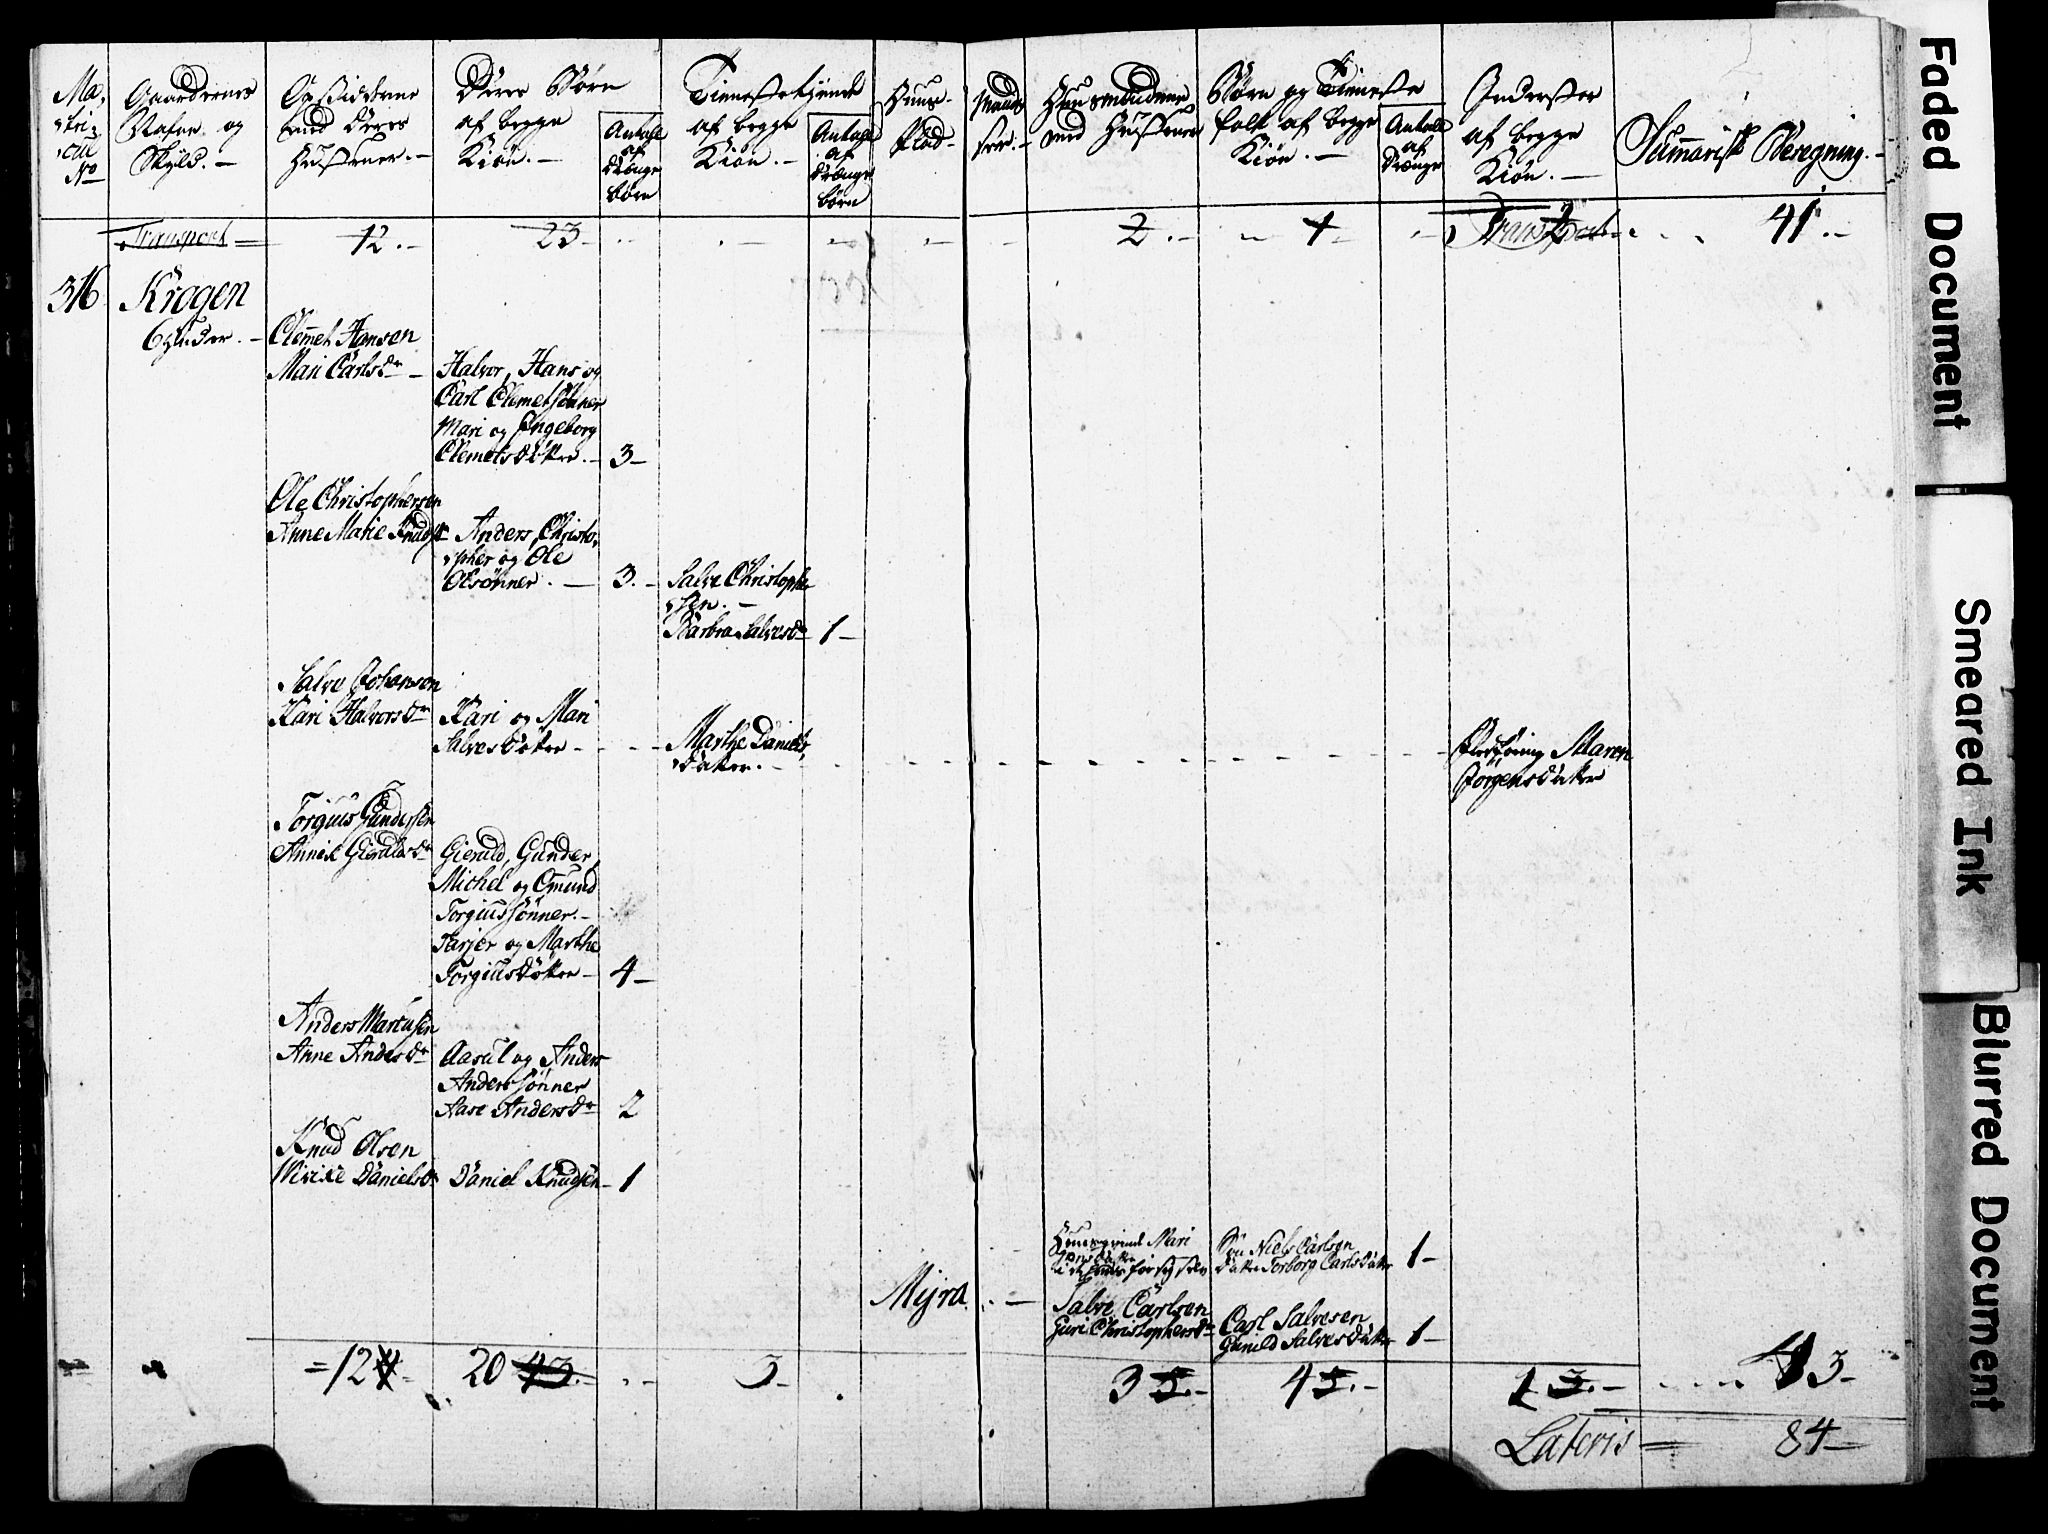 Ma-
tri-
cul
No
Gaardernes
Nafne og
Skyld. —
Opsiddere
med deres
Hustruer. —
Deres Børn
af begge
Kiøn. —
Antall
af
Drænge
børn
Tienestetyende
af begge
Kiøn. —
Antall
af
Drænge
børn
Huus-
Plad-
ser. —
Huusmændene
med Hustruer
Børn og Tieneste
folk af begge
Kiøn. —
Antall
af
Drænge
Inderster
af begge
Kiøn. —
Summarisk Beregning. —
Transport — 12. — 23 — 2. — 4 — Transport 41. —
316 Krogen
6 Huder. —
Clemet Hansen
Mari Carlsdr — Halvor, Hans og
Carl Clemetsönner
Mari og Ingeborg
Clemetsdötre. — 3 —
Ole Christophersen
Anne Marie Knudsdr Anders, Christo-
pher og Ole
Olsönner. — 3. — Salve Christopher
sen. —
Barbra Salvesdr 1 —
Salve Johansen
Kari Halvorsdr Kari og Mari
Salvesdötre - - - Marthe Daniels
datter. - - - Maren
Jörgensdatter
Torgius Gundersen
Anne Gieruldsdr Gieruld, Gunder,
Michel og Omund
Torgiussönner. —
Tarjer og Marthe
Torgiusdötre — 4 —
Anders Martusen
Anne Andersdr Aasul og Anders
Anderssönner
Aase Andersdr 2
Knud Olsen
Wivike Danielsdr Daniel Knudsen — 1
Mari
for sig selv
Sön Niels Carlsen
Datter Torborg Carlsdatter 1 —
Myra. - — Salve Carlsen
Guri Christophersdr Carl Salvesen
Gunild Salvesdatter 1 —
= 12 20 43. - - 3 — 3 5. — 4 5. — 1 3. — - - - 43 —
Lateris = 84 —
Faded Document
Smeared Ink
Blurred Document